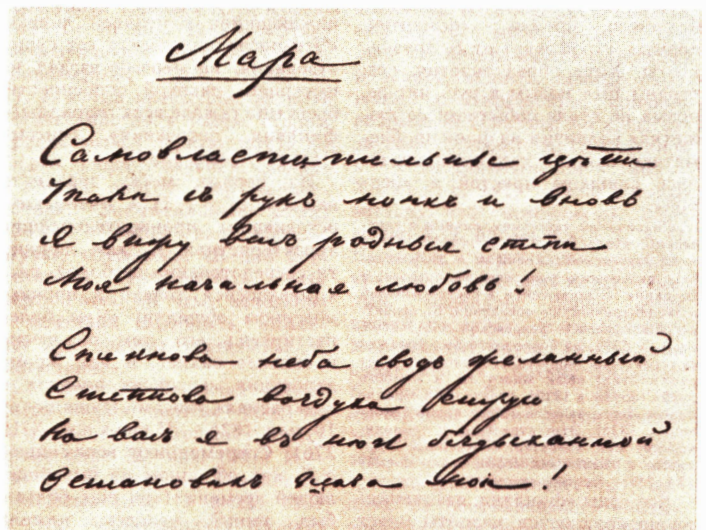 Мара
Самовластительные цѣпи
Упали съ рукъ моихъ и вновь
Я вижу васъ родныя степи
Моя начальная любовь!
Степнова неба сводъ желанный
Степнова воздуха струи
На васъ я въ нѣгѣ бездыханной
Остановилъ глаза мои!